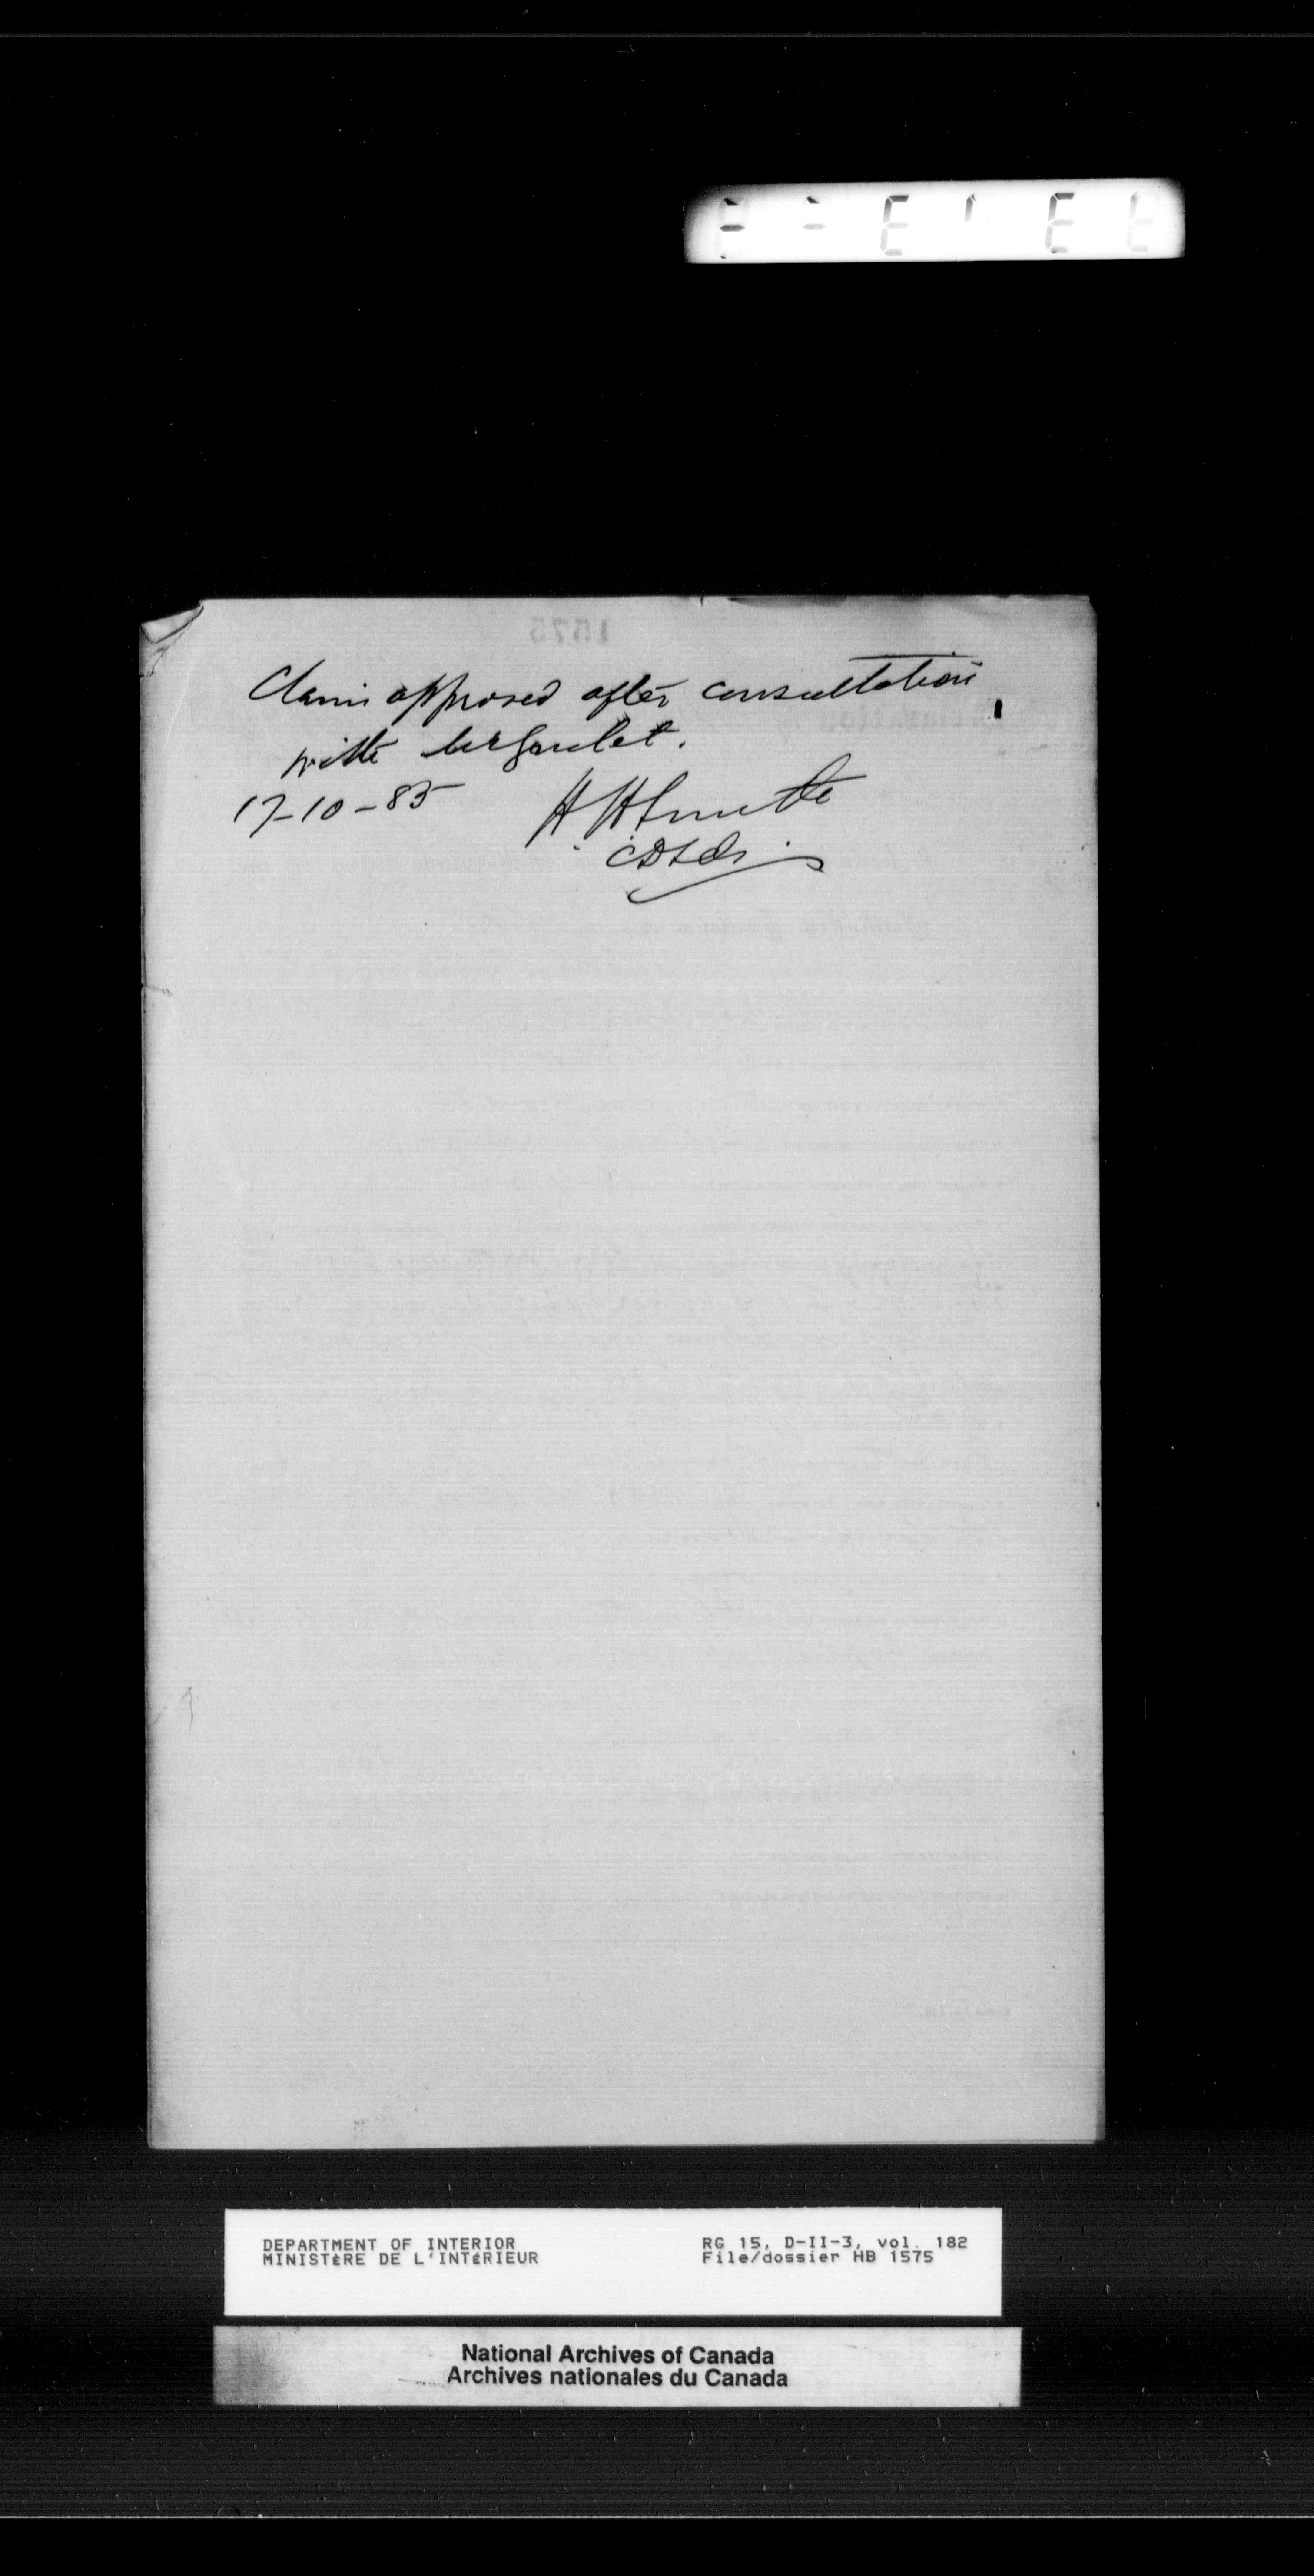 Claim opposed after consultation
with
17-10-85
H H Smith
C D Lds
DEPARTMENT OF INTERIOR
MINISTÈRE DE L'INTÉRIEUR
RG 15, D-II-3, vol. 182
File/dossier HB 1575
National Archives of Canada
Archives nationales du Canada